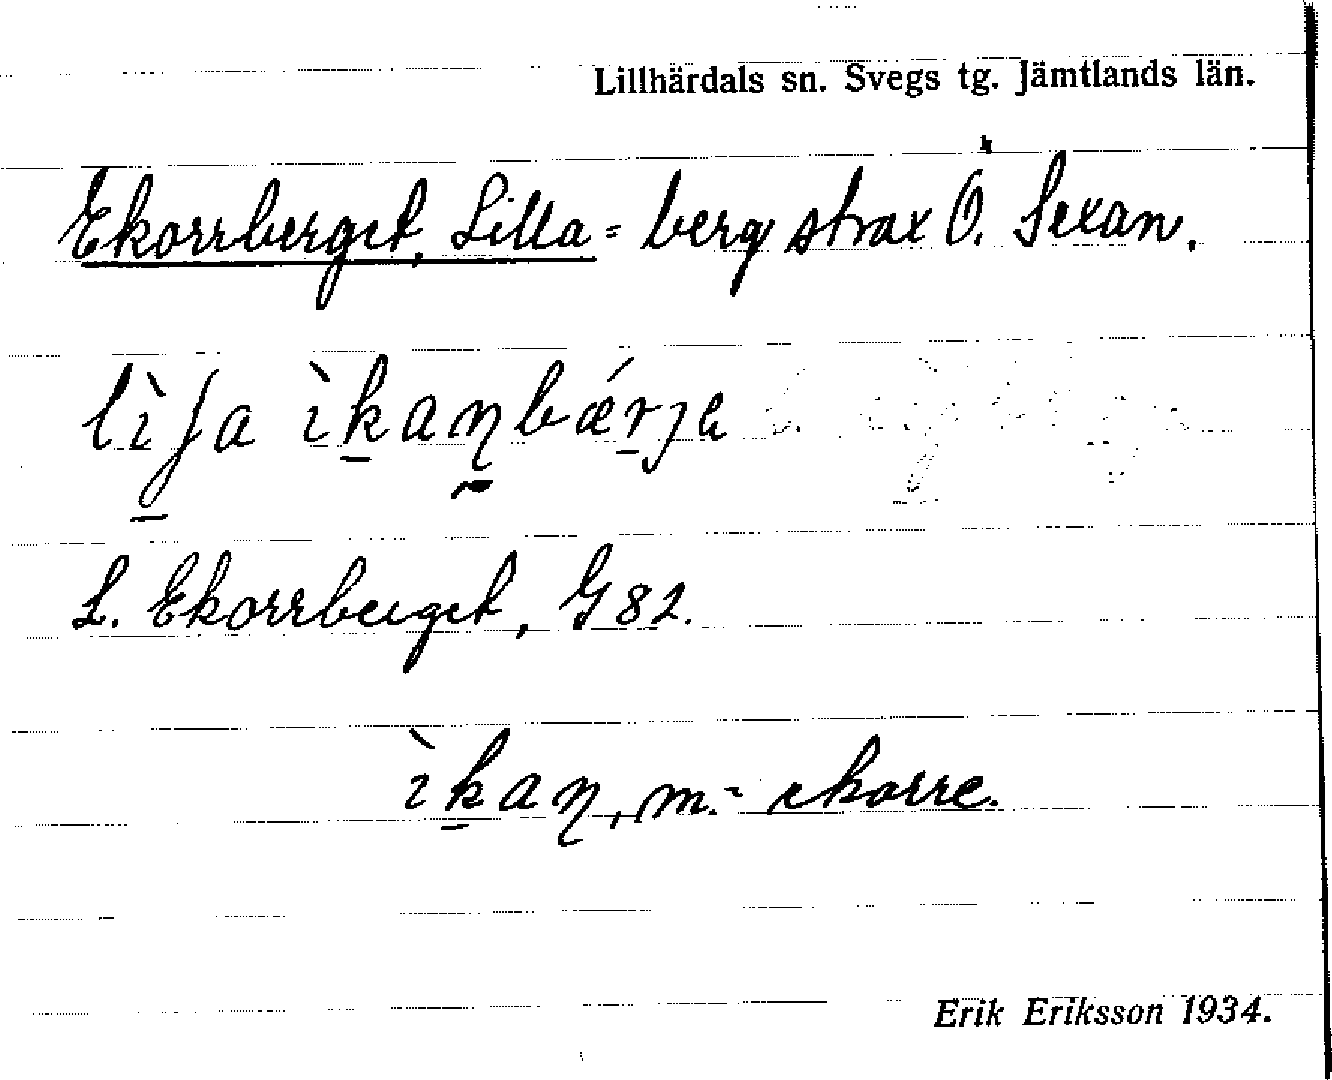 Lillhärdals sn. Svegs tg. Jämtlands län.
Ekorrberget, Lilla = berg strax Ö. Sexan.
lìʃa ìkaŋbǽrje
L. Ekorrberget, G 82.
ìkaŋ, m. = ekorre.
Erik Eriksson 1934.